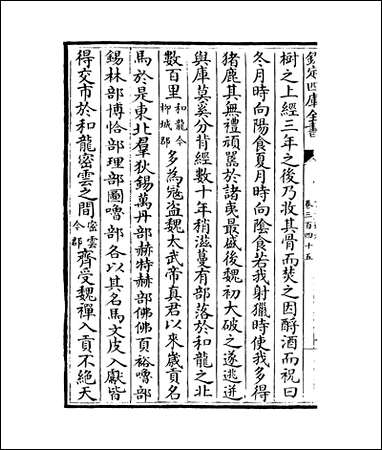 欽定四庫全書
卷三百四十五
樹之上經三年之後乃收其骨而焚之因酹酒而祝曰
冬月時向陽食夏月時向陰食若我射獵時使我多得
猪鹿其無禮頑嚚於諸夷最盛後魏初大破之遂逃迸
與庫莫奚分背經數十年稍滋蔓有部落於和龍之北
數百里和龍今柳城郡多為冦盗魏太武帝真君以來歲貢名
馬於是東北羣狄錫萬丹部赫特赫部佛佛頁裕嚕部
錫林部博恰部理部圖嚕部各以其名馬文皮入獻皆
得交市於和龍密雲之間密雲今郡齊受魏禪入貢不絶天